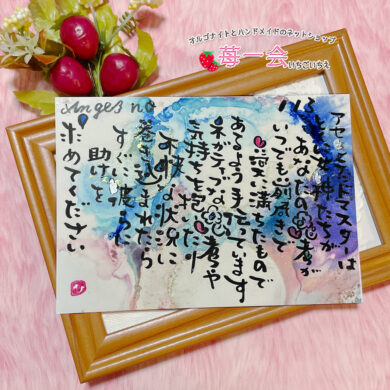 オルゴナイトとハンドメイドのネットショップ
苺一会
いちごいちえ
anges no
アセンデッドマスターは
神たちが
あなたの思考が
いつでも前向きで
愛に満ちたもので
あるよう手伝っています
ネガティブな思考や
気持ちを抱いたり
不快な状況に
巻き込まれたら
すぐに彼らに
助けを
求めてください